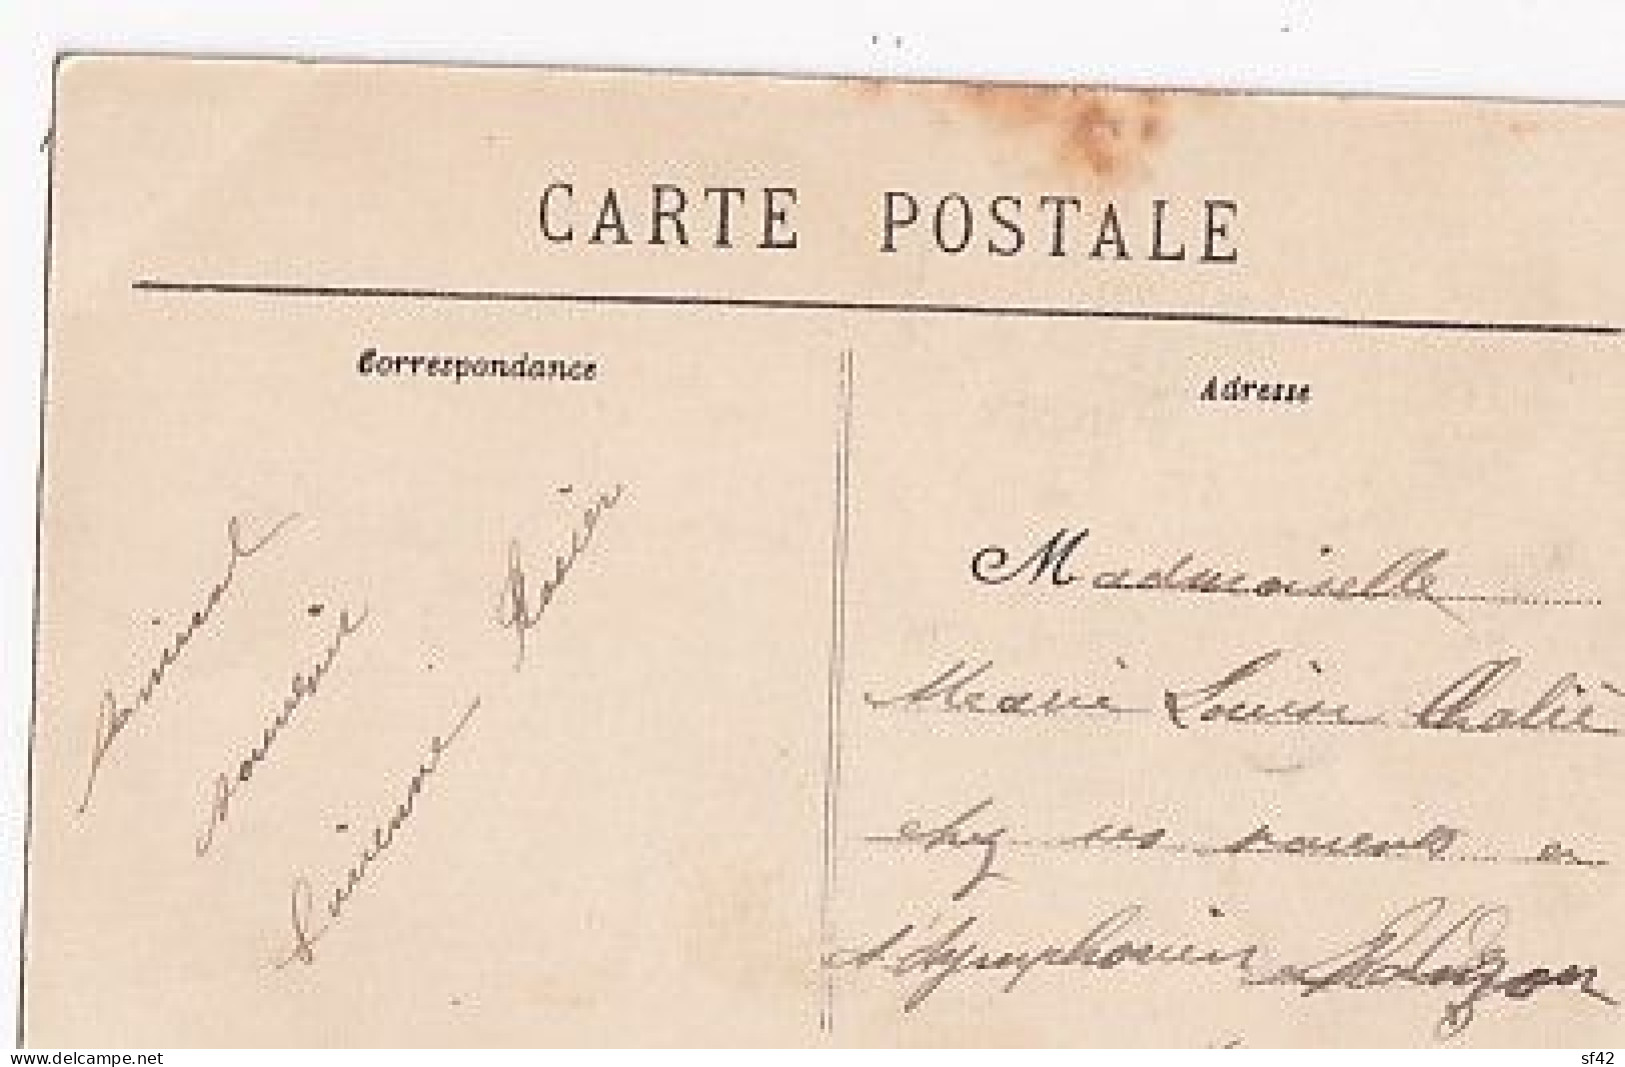 CARTE POSTALE
Correspondance
Adresse
Amical
souvenir
Mademoiselle
Marie Louise
chez ses parents
St Symphorien
www.delcampe.net
sf42